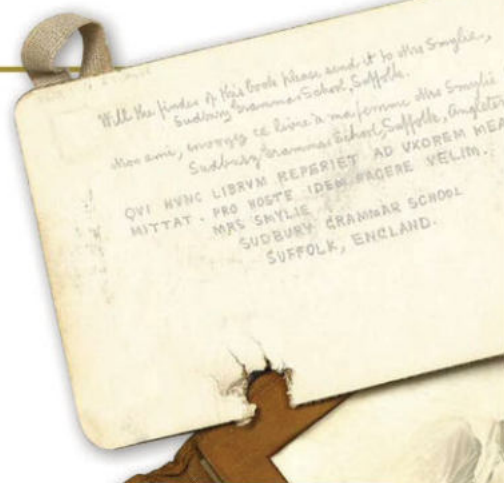 Will the finder of this book please send it to Mrs Smylie,
Sudbury Grammar School, Suffolk.
Mon ami, envoyez ce livre à ma femme Mrs Smylie
Sudbury Grammar School, Suffolk, Anglete
QVI HVNC LIBRVM REPERIET AD VXOREM MEA
MITTAT. PRO HOSTE IDEM FACERE VELIM.
MRS SMYLIE
SUDBURY GRAMMAR SCHOOL
SUFFOLK, ENGLAND.